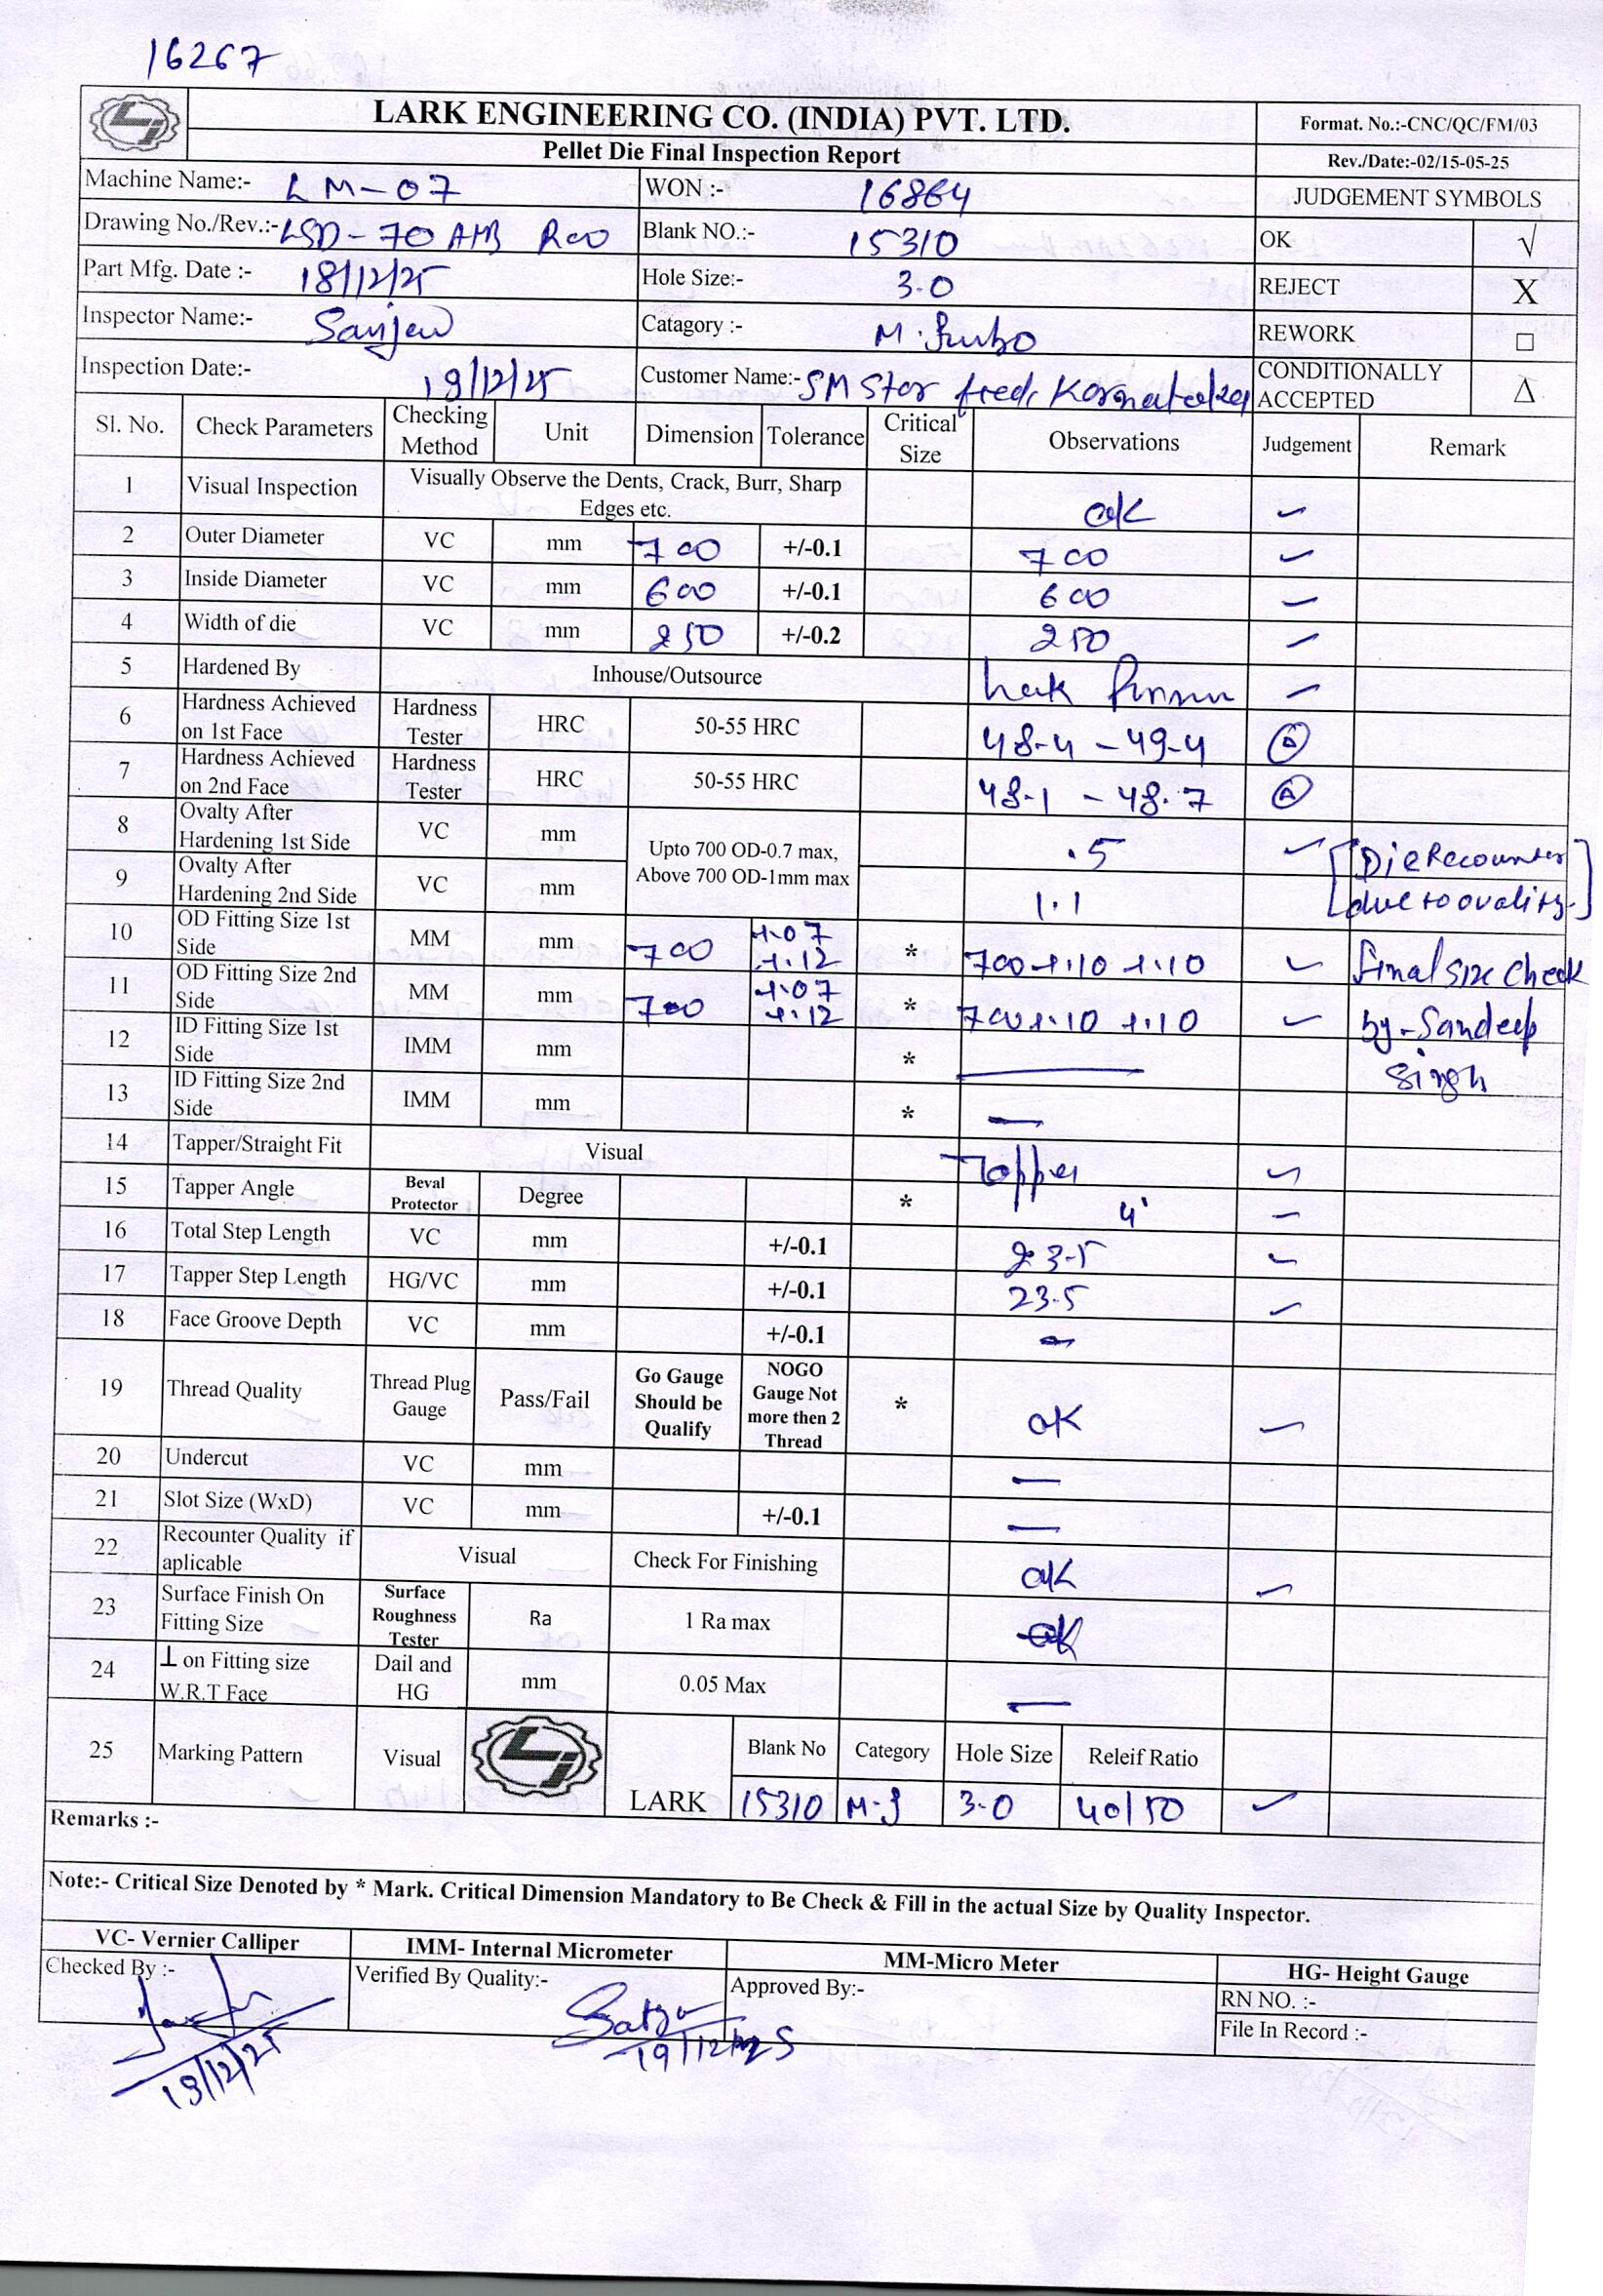 16267
LARK ENGINEERING CO. (INDIA) PVT. LTD.
Format. No.:-CNC/QC/FM/03
Pellet Die Final Inspection Report
Rev./Date:-02/15-05-25
Machine Name:- LM-07 WON :- 16864 JUDGEMENT SYMBOLS
Drawing No./Rev.:- LSD-70 AMB R00 Blank NO.:- 15310 OK √
Part Mfg. Date :- 18/12/25 Hole Size:- 3.0 REJECT X
Inspector Name:- Sanjeev Catagory :- M. REWORK □
Inspection Date:- 19/12/25 Customer Name:- SM Star feed, Karnataka CONDITIONALLY ACCEPTED Δ
Sl. No. Check Parameters Checking Method Unit Dimension Tolerance Critical Size Observations Judgement Remark
1 Visual Inspection Visually Observe the Dents, Crack, Burr, Sharp Edges etc. ok ✓
2 Outer Diameter VC mm 700 +/-0.1 700 ✓
3 Inside Diameter VC mm 600 +/-0.1 600 ✓
4 Width of die VC mm 250 +/-0.2 250 ✓
5 Hardened By Inhouse/Outsource ✓
6 Hardness Achieved on 1st Face Hardness Tester HRC 50-55 HRC 48-4 - 49-4
7 Hardness Achieved on 2nd Face Hardness Tester HRC 50-55 HRC 48-1 - 48.7
8 Ovalty After Hardening 1st Side VC mm Upto 700 OD-0.7 max, Above 700 OD-1mm max .5 ✓ [Die Recounter
9 Ovalty After Hardening 2nd Side VC mm 1.1 due to ovality.]
10 OD Fitting Size 1st Side MM mm 700 +.07 +.12 * 700 +.10 +.10 ✓ final size check
11 OD Fitting Size 2nd Side MM mm 700 +.07 +.12 * 700 +.10 +.10 ✓ by - Sandeep
12 ID Fitting Size 1st Side IMM mm * — Singh
13 ID Fitting Size 2nd Side IMM mm * —
14 Tapper/Straight Fit Visual Tapper ✓
15 Tapper Angle Beval Protector Degree * 4° ✓
16 Total Step Length VC mm +/-0.1 23.5 ✓
17 Tapper Step Length HG/VC mm +/-0.1 23.5 ✓
18 Face Groove Depth VC mm +/-0.1 —
19 Thread Quality Thread Plug Gauge Pass/Fail Go Gauge Should be Qualify NOGO Gauge Not more then 2 Thread * OK ✓
20 Undercut VC mm —
21 Slot Size (WxD) VC mm +/-0.1 —
22 Recounter Quality if aplicable Visual Check For Finishing ok ✓
23 Surface Finish On Fitting Size Surface Roughness Tester Ra 1 Ra max ok
24 ⊥ on Fitting size W.R.T Face Dail and HG mm 0.05 Max —
25 Marking Pattern Visual LARK Blank No Category Hole Size Releif Ratio
15310 3.0 40/50 ✓
Remarks :-
Note:- Critical Size Denoted by * Mark. Critical Dimension Mandatory to Be Check & Fill in the actual Size by Quality Inspector.
VC- Vernier Calliper IMM- Internal Micrometer MM-Micro Meter HG- Height Gauge
Checked By :- Verified By Quality:- Approved By:- RN NO. :-
File In Record :-
19/12/25 19/12/25